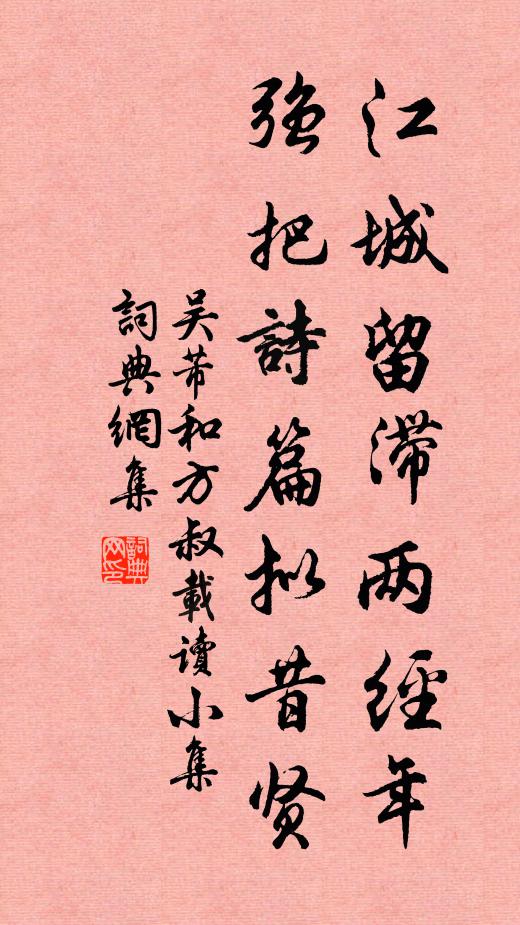 江城留滞两經年
强把詩篇拟昔贤
吴芾和方叔載读小集
詞典網集
詞典网印